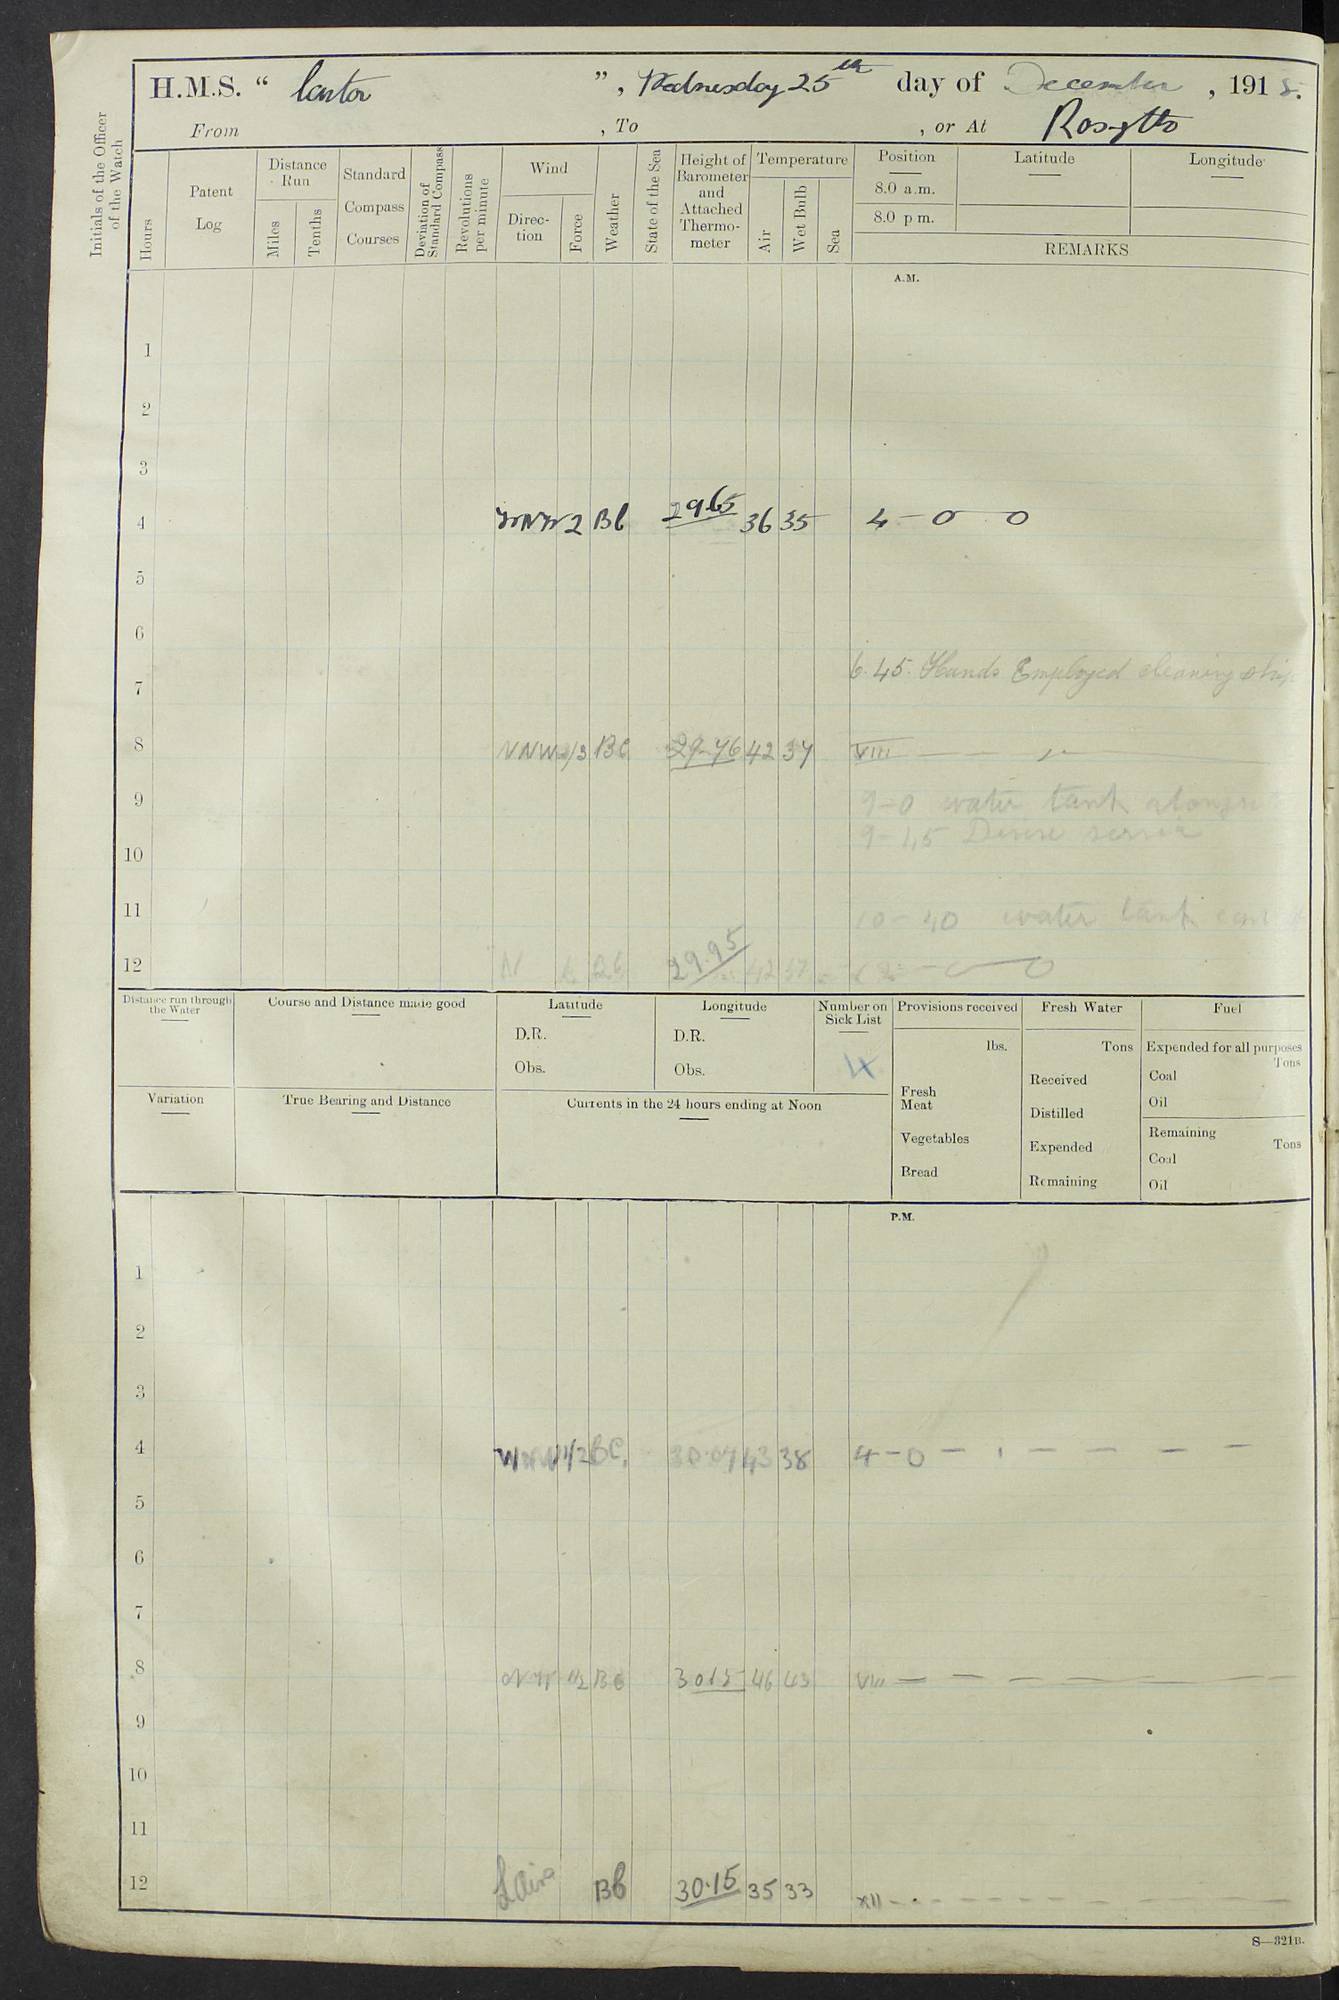 H.M.S. “ Castor ”, Wednesday 25th day of December , 1918.
From , To , or At Rosyth
Initials of the Officer of the Watch
Hours
Patent Log
Distance Run
Miles
Tenths
Standard Compass Courses
Deviation of Standard Compass
Revolutions per minute
Wind
Direc- tion
Force
Weather
State of the Sea
Height of Barometer and Attached Thermo- meter
Temperature
Air
Wet Bulb
Sea
Position
8.0 a.m.
8.0 p m.
Latitude
Longitude
REMARKS
A.M.
1
2
3
4 WNW 2 BC 29.65 36 35 4 – 0 0
5
6
6.45. Hands Employed cleaning ship
7
8 NNW 2/3 BC 29.76 42 37 VIII
9 9–0 water tank
9–45 Divine service
10
11 10–40 water tank
12 N 29.95 42 37
Distance run through the Water
Course and Distance made good
Latitude
D.R.
Obs.
Longitude
D.R.
Obs.
Number on Sick List
4
Provisions received
lbs.
Fresh Meat
Vegetables
Bread
Fresh Water
Tons
Received
Distilled
Expended
Remaining
Fuel
Expended for all purposes
Tons
Coal
Oil
Remaining
Tons
Coal
Oil
Variation
True Bearing and Distance
Currents in the 24 hours ending at Noon
P.M.
1
2
3
4 WNW 1/2 BC. 30.07 43 38 4–0 – – – – – –
5
6
7
8 NW 1/2 BC 3015 46 43 VIII – – – – – –
9
10
11
12 BC 30.15 35 33 XII – – – – – –
S—321B.